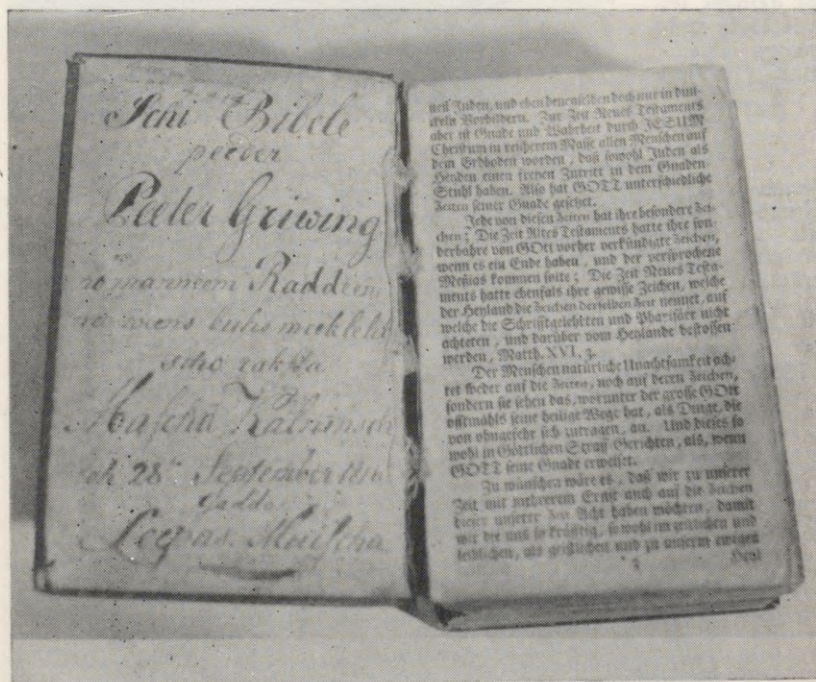 Schi Bibele
peeder
Peeter Griwing
no manneem Raddeem
no weens buhs meeklehts
scho rakſta
Maſcha Kalnmuisch
28 September
Gadda
Leepas Muiſcha
neſſ Juden, und eben denenſelben doch nur in dun⸗
ckeln Vorbildern. Zur Zeit Neues Teſtaments
aber iſt Gnade und Wahrheit durch JESUM
Chriſtum in reicherem Maſſe allen Menſchen auf
dem Erdboden worden, daß ſowohl Juden als
Heyden einen freyen Zutritt zu dem Gnaden⸗
Stuhl haben. Alſo hat GOTT unterſchiedliche
Zeiten ſeiner Gnade geſetzet.
Jede von dieſen Zeiten hat ihre beſondere Zei⸗
chen; Die Zeit Altes Teſtaments hatte ihre ſon⸗
derbahre von GOtt vorher verkündigte Zeichen,
wenn es ein Ende haben, und der verſprochene
Meßias kommen ſolte; Die Zeit Neues Teſta⸗
ments hatte ebenfals ihre gewiſſe Zeichen, welche
der Heyland die Zeichen derſelben Zeit nennet, auf
welche die Schrifftgelehrten und Phariſäer nicht
achteten, und darüber vom Heylande beſtoſſen
werden, Matth. XVI, 3.
Der Menſchen natürliche Unachtſamkeit ach⸗
tet weder auf die Zeiten, noch auf deren Zeichen,
ſondern ſie ſehen das, worunter der groſſe GOtt
offtmahls ſeine heilige Wege hat, als Dinge, die
von ohngefehr ſich zutragen, an. Und dieſes ſo
wohl in Göttlichen Straff Gerichten, als, wenn
GOTT ſeine Gnade erweiſet.
Zu wünſchen wäre es, daß wir zu unſerer
Zeit mit mehrerem Ernſt auch auf die Zeichen
dieſer unſerer Zeit Acht haben möchten, damit
wir die uns ſo kräftig, ſowohl im zeitlichen und
leiblichen, als geiſtlichen und zu unſerm ewigen
Heyl